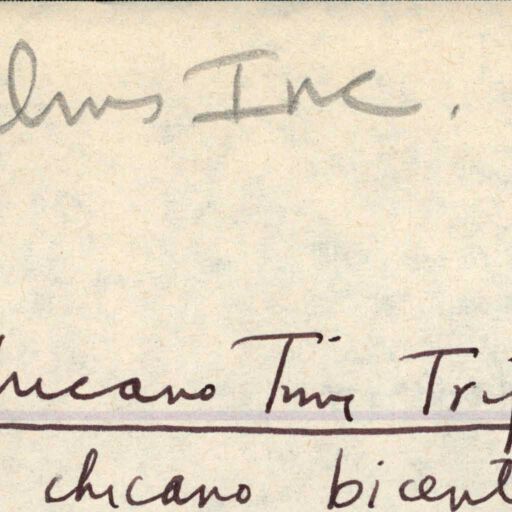 lms Inc.
hicano Time Trip
chicano bicent